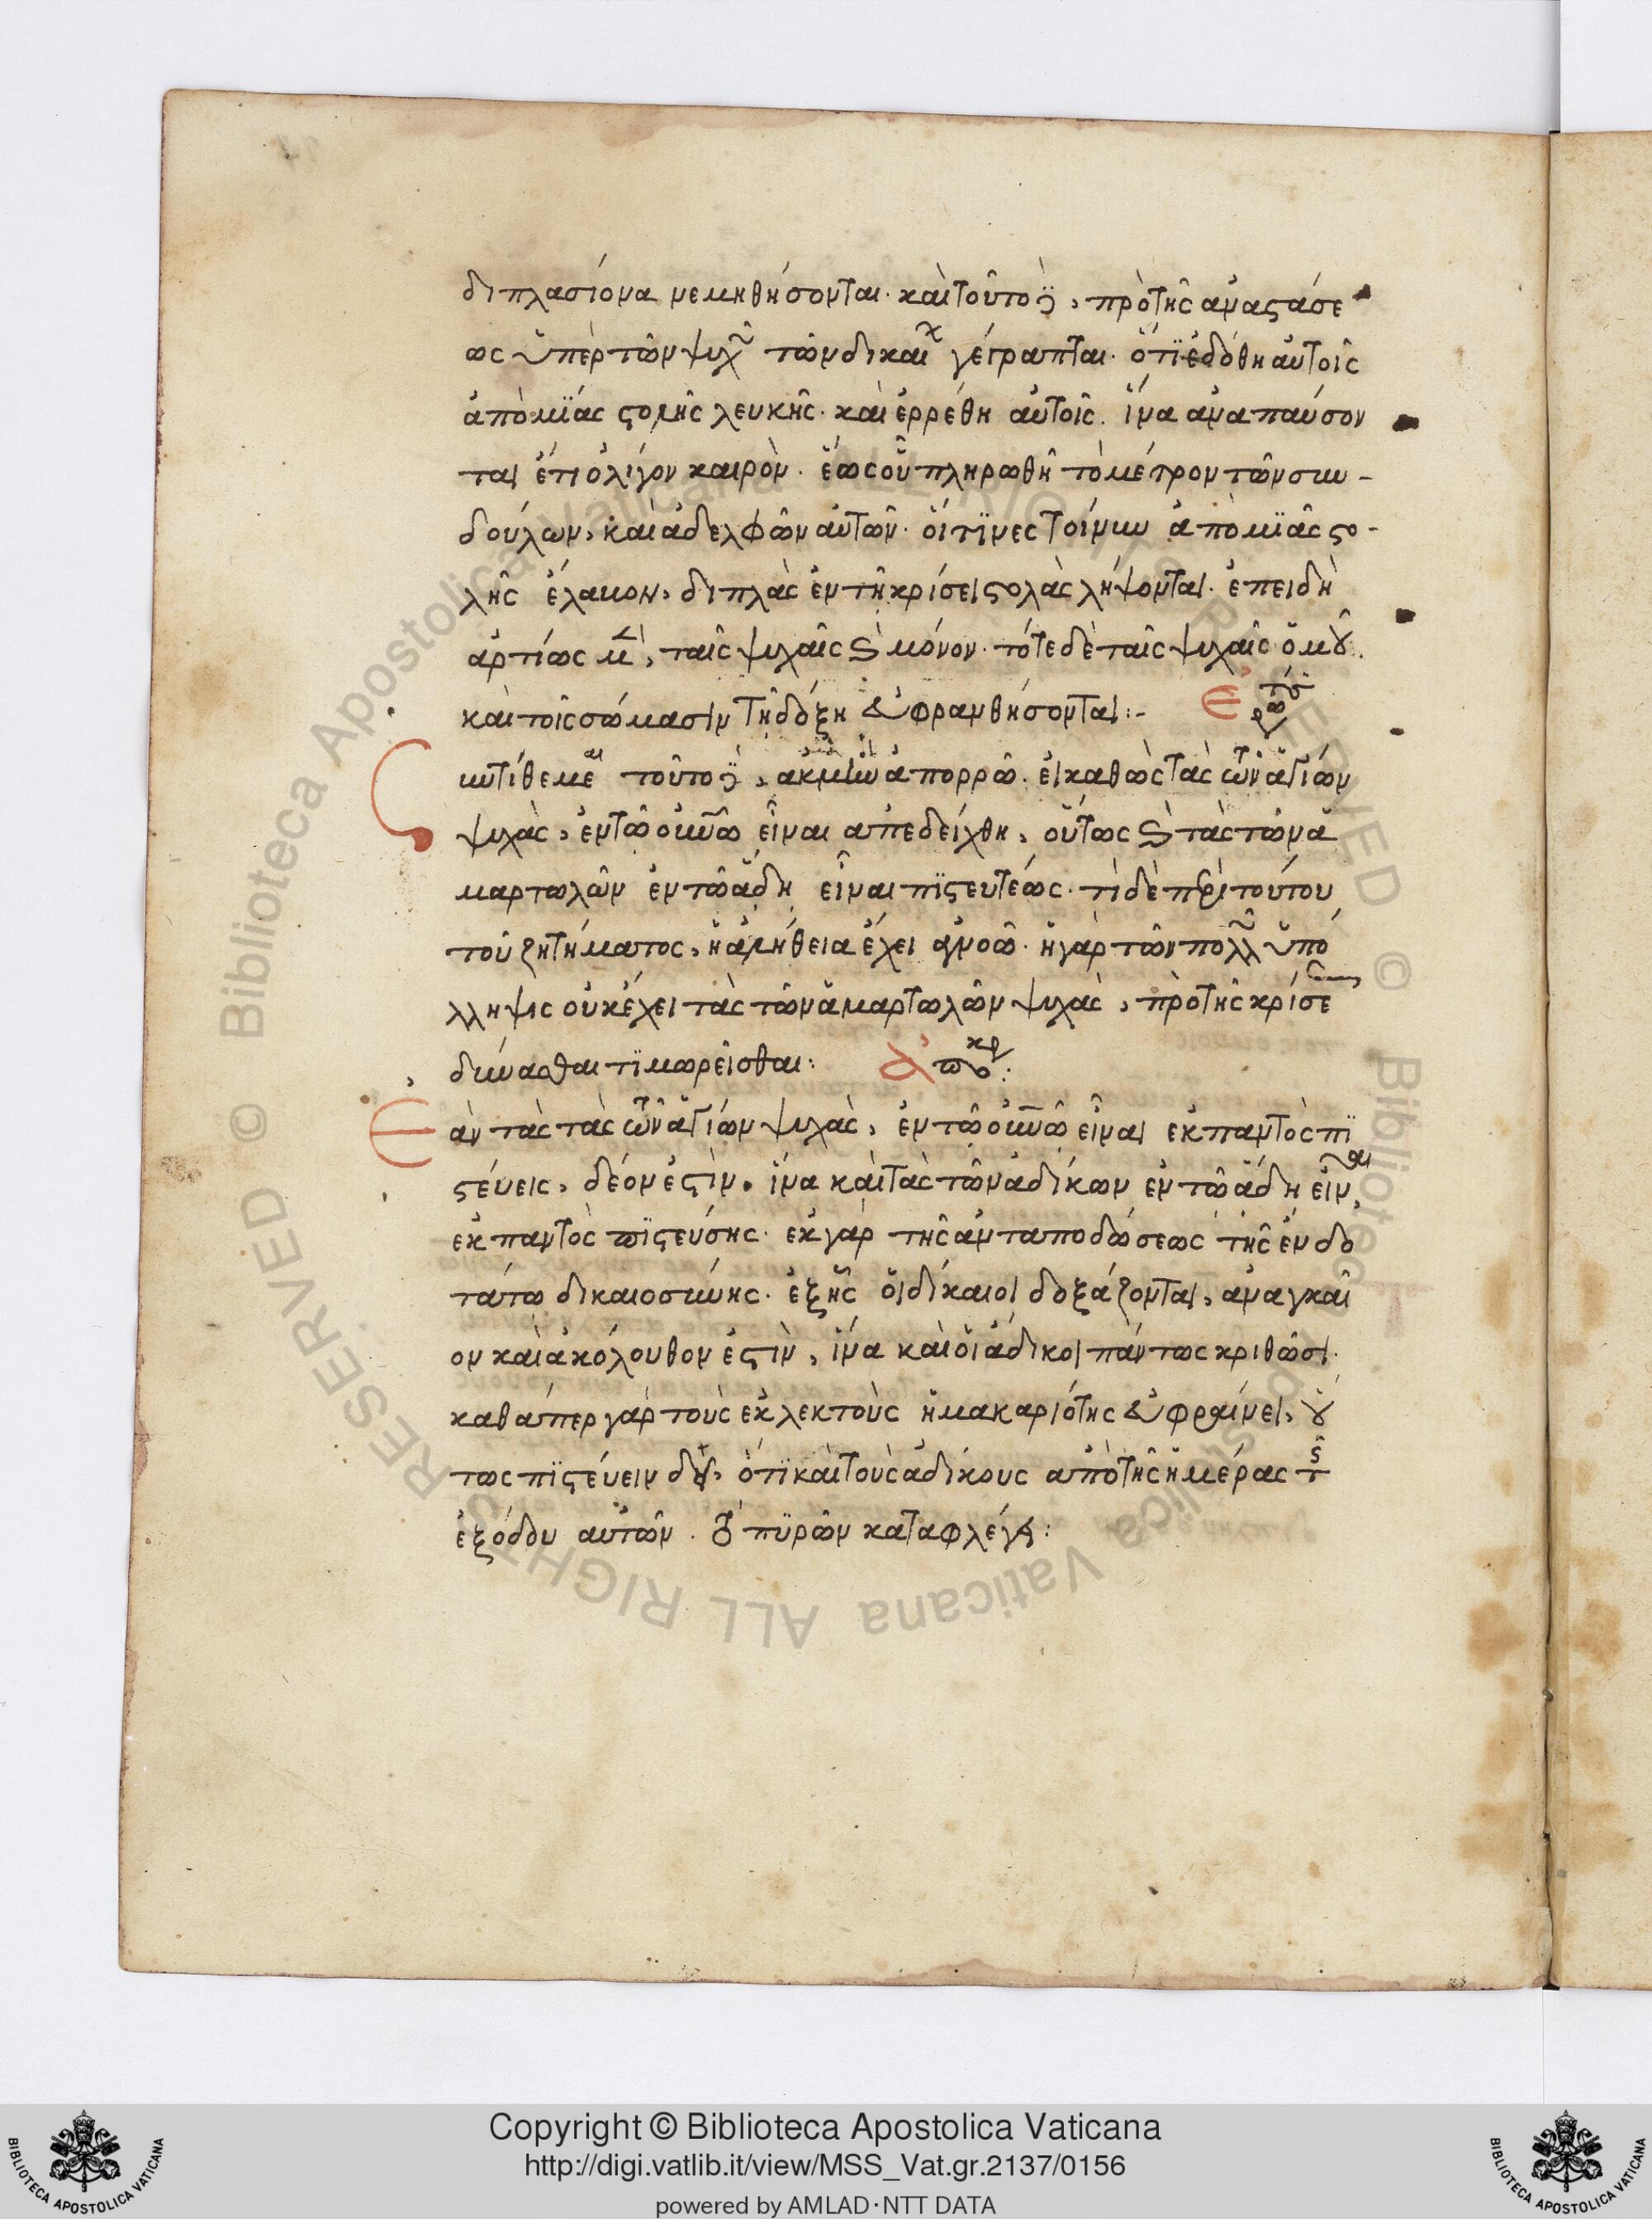 διπλασίονα νεμηθήσονται· καὶ τοῦτο , πρὸ τῆς αναστάσε
ως ὑπὲρ τῶν ψυχ τῶν δικαι γέγραπται· ὅτϊ ἐδόθη αὐτοῖς
ἀπὸ μϊάς στολῆς λευκῆς· καὶ ἐρρέθη αὐτοῖς. ἵνα αναπαύσον
ται ἔτι ὀλίγον καιρὸν· ἕως οὗ πληρωθῆ τὸ μέτρον τῶν συν-
δούλων, καὶ ἀδελφῶν αὐτῶν· οἵτϊνες τοίνυν ἀπὸ μϊᾶς στο-
λῆς ἔλαβον, διπλὰς ἐν τῆ κρίσει στολὰς λήψονται· ἐπειδὴ
ἀρτίως μ, ταῖς ψυχαῖς καὶ μόνον· τότε δὲ ταῖς ψυχαῖς ὁμοῦ.
καὶ τοῖς σώμασιν τῆ δόξη εὐφρανθήσονται:- Ἐ
υντίθεμαι τοῦτο , ἀκμὴν ἀπορρῶ· εἰ καθὼς τὰς τῶν ἁγίων
ψυχὰς, ἐν τῶ οὐνῶ εἶναι απεδείχθη, οὕτως καὶ τὰς τῶν ἁ
μαρτωλῶν ἐν τῶ ἅδη εἶναι πϊστευτέως· τὶ δὲ περὶ τούτου
τοῦ ζητήματος, ἡ ἀλήθεια ἔχει ἀγνοῶ· ἡ γὰρ τῶν πολλ ὑπό
λληψις οὐκ ἔχει τὰς τῶν ἁμαρτωλῶν ψυχὰς, πρὸ τῆς κρίσε
δύνασθαι τϊμωρεῖσθαι: Ἀποκρ:
Ἐὰν τὰς τὰς τῶν ἁγίων ψυχὰς, ἐν τῶ οὐνῶ εἶναι ἐκ παντὸς πϊ
στεύεις, δέον ἐστὶν. ἵνα καὶ τὰς τῶν ἀδίκων ἐν τῶ ἅδη εἶναι,
ἐκ παντὸς πϊστεύσης· ἐκ γὰρ τῆς ἀνταποδώσεως τῆς ἐνδο
τάτω δικαιοσύνης· ἐξ ἧς οἱ δίκαιοι δοξάζονται, ἀναγκαῖ
ον καὶ ἀκόλουθον ἐστὶν, ἵνα καὶ οἱ ἄδικοι πάντως κριθῶσι·
καθάπερ γὰρ τοὺς ἐκλεκτοὺς ἡ μακαριότης εὐφραίνει, οὕ
τως πϊστεύειν δεῖ, ὅτϊ καὶ τοὺς ἀδίκους απὸ τῆς ἡμέρας τῆς
ἐξόδου αὐτῶν. τὸ πῦρ ὧν καταφλέγει:
Copyright © Biblioteca Apostolica Vaticana
http://digi.vatlib.it/view/MSS_Vat.gr.2137/0156
powered by AMLAD·NTT DATA
BIBLIOTECA APOSTOLICA VATICANA
BIBLIOTECA APOSTOLICA VATICANA
© Biblioteca Apostolica Vaticana ALL RIGHTS RESERVED © Biblioteca Apostolica Vaticana ALL RIGHTS RESERVED